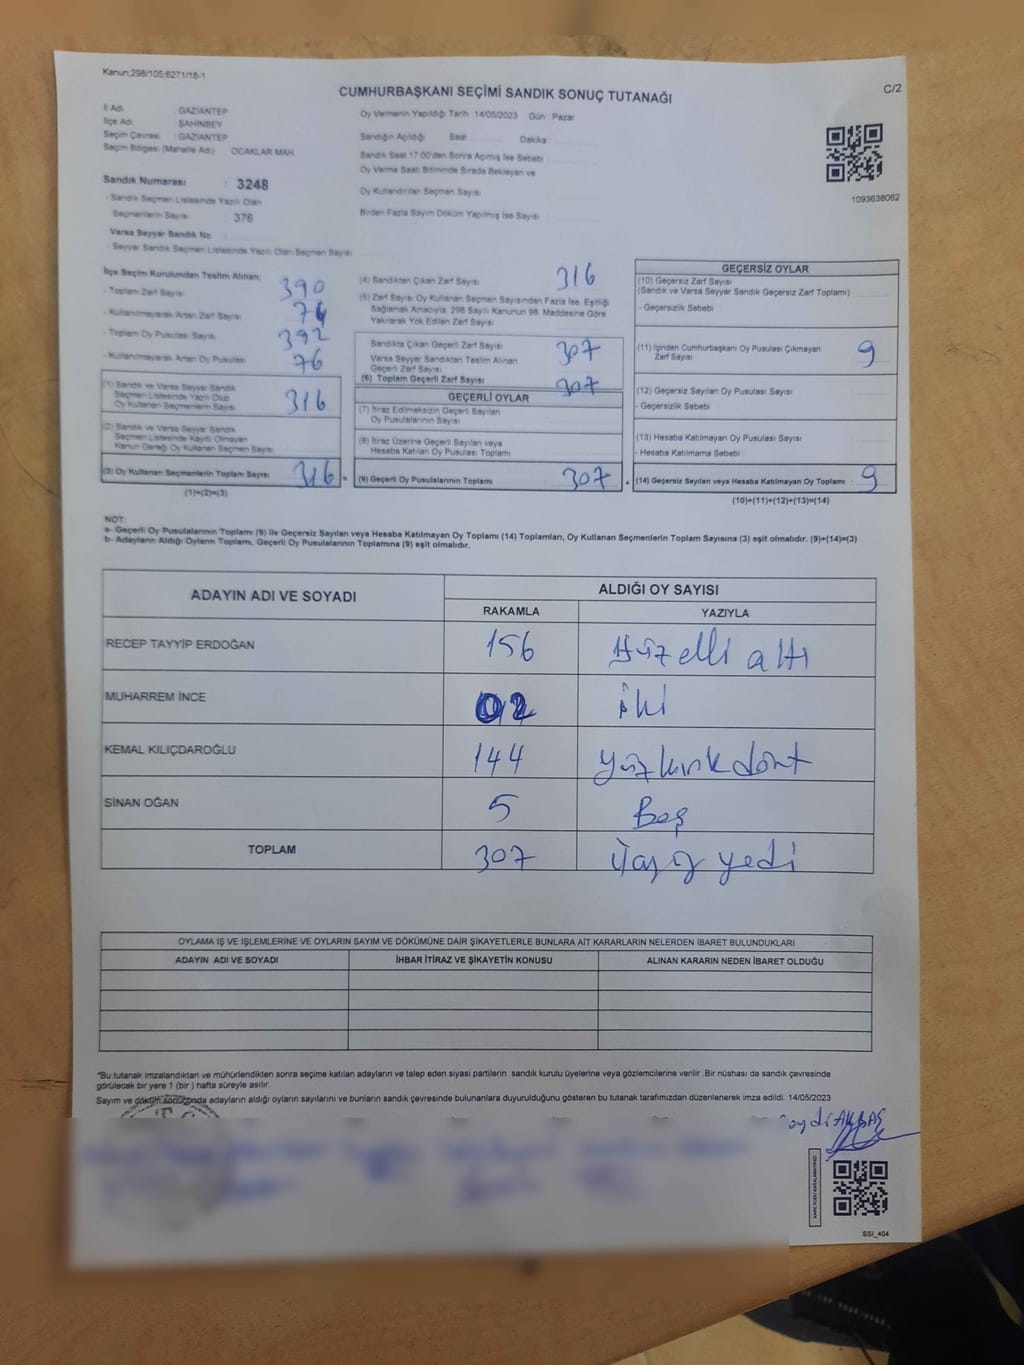 Kanun:298/105;6271/18-1
C/2
CUMHURBAŞKANI SEÇİMİ SANDIK SONUÇ TUTANAĞI
İl Adı GAZİANTEP
İlçe Adı ŞAHİNBEY
Seçim Çevresi : GAZİANTEP
Seçim Bölgesi (Mahalle Adı) OCAKLAR MAH.
Sandık Numarası : 3248
- Sandık Seçmen Listesinde Yazılı Olan
Seçmenlerin Sayısı : 376
Varsa Seyyar Sandık No
- Seyyar Sandık Seçmen Listesinde Yazılı Olan Seçmen Sayısı
Oy Vermenin Yapıldığı Tarih 14/05/2023 Gün : Pazar
Sandığın Açıldığı Saat Dakika
Sandık Saat 17.00'den Sonra Açılmış İse Sebebi
Oy Verme Saati Bitiminde Sırada Bekleyen ve
Oy Kullandırılan Seçmen Sayısı
Birden Fazla Sayım Döküm Yapılmış İse Sayısı
1093638062
İlçe Seçim Kurulundan Teslim Alınan;
- Toplam Zarf Sayısı 390
- Kullanılmayarak Artan Zarf Sayısı 74
- Toplam Oy Pusulası Sayısı 392
- Kullanılmayarak Artan Oy Pusulası 76
(1) Sandık ve Varsa Seyyar Sandık
Seçmen Listesinde Yazılı Olup
Oy Kullanan Seçmenlerin Sayısı 316
(2) Sandık ve Varsa Seyyar Sandık
Seçmen Listesinde Kayıtlı Olmayan
Kanun Gereği Oy Kullanan Seçmen Sayısı
(3) Oy Kullanan Seçmenlerin Toplam Sayısı 316
(1)+(2)=(3)
=
(4) Sandıktan Çıkan Zarf Sayısı 316
(5) Zarf Sayısı Oy Kullanan Seçmen Sayısından Fazla İse, Eşitliği
Sağlamak Amacıyla, 298 Sayılı Kanunun 98. Maddesine Göre
Yakılarak Yok Edilen Zarf Sayısı
Sandıkta Çıkan Geçerli Zarf Sayısı 307
Varsa Seyyar Sandıktan Teslim Alınan
Geçerli Zarf Sayısı
(6) Toplam Geçerli Zarf Sayısı 307
GEÇERLİ OYLAR
(7) İtiraz Edilmeksizin Geçerli Sayılan
Oy Pusulalarının Sayısı
(8) İtiraz Üzerine Geçerli Sayılan veya
Hesaba Katılan Oy Pusulaları Toplamı
(9) Geçerli Oy Pusulalarının Toplamı 307
+
GEÇERSİZ OYLAR
(10) Geçersiz Zarf Sayısı
(Sandık ve Varsa Seyyar Sandık Geçersiz Zarf Toplamı)
- Geçersizlik Sebebi
(11) İçinden Cumhurbaşkanı Oy Pusulası Çıkmayan
Zarf Sayısı 9
(12) Geçersiz Sayılan Oy Pusulası Sayısı
- Geçersizlik Sebebi
(13) Hesaba Katılmayan Oy Pusulası Sayısı
- Hesaba Katılmama Sebebi
(14) Geçersiz Sayılan veya Hesaba Katılmayan Oy Toplamı : 9
(10)+(11)+(12)+(13)=(14)
NOT:
a- Geçerli Oy Pusulalarının Toplamı (9) ile Geçersiz Sayılan veya Hesaba Katılmayan Oy Toplamı (14) Toplamları, Oy Kullanan Seçmenlerin Toplam Sayısına (3) eşit olmalıdır. (9)+(14)=(3)
b- Adayların Aldığı Oyların Toplamı, Geçerli Oy Pusulalarının Toplamına (9) eşit olmalıdır.
ADAYIN ADI VE SOYADI ALDIĞI OY SAYISI
RAKAMLA YAZIYLA
RECEP TAYYİP ERDOĞAN 156 Yüzelli altı
MUHARREM İNCE 02 iki
KEMAL KILIÇDAROĞLU 144 yüzkırkdört
SİNAN OĞAN 5 Beş
TOPLAM 307 Üçyüz yedi
OYLAMA İŞ VE İŞLEMLERİNE VE OYLARIN SAYIM VE DÖKÜMÜNE DAİR ŞİKAYETLERLE BUNLARA AİT KARARLARIN NELERDEN İBARET BULUNDUKLARI
ADAYIN ADI VE SOYADI İHBAR İTİRAZ VE ŞİKAYETİN KONUSU ALINAN KARARIN NEDEN İBARET OLDUĞU
*Bu tutanak imzalandıktan ve mühürlendikten sonra seçime katılan adayların ve talep eden siyasi partilerin sandık kurulu üyelerine veya gözlemcilerine verilir .Bir nüshası da sandık çevresinde
görülecek bir yere 1 (bir ) hafta süreyle asılır.
Sayım ve döküm sonucunda adayların aldığı oyların sayılarını ve bunların sandık çevresinde bulunanlara duyurulduğunu gösteren bu tutanak tarafımızdan düzenlenerek imza edildi. 14/05/2023
SSİ_404